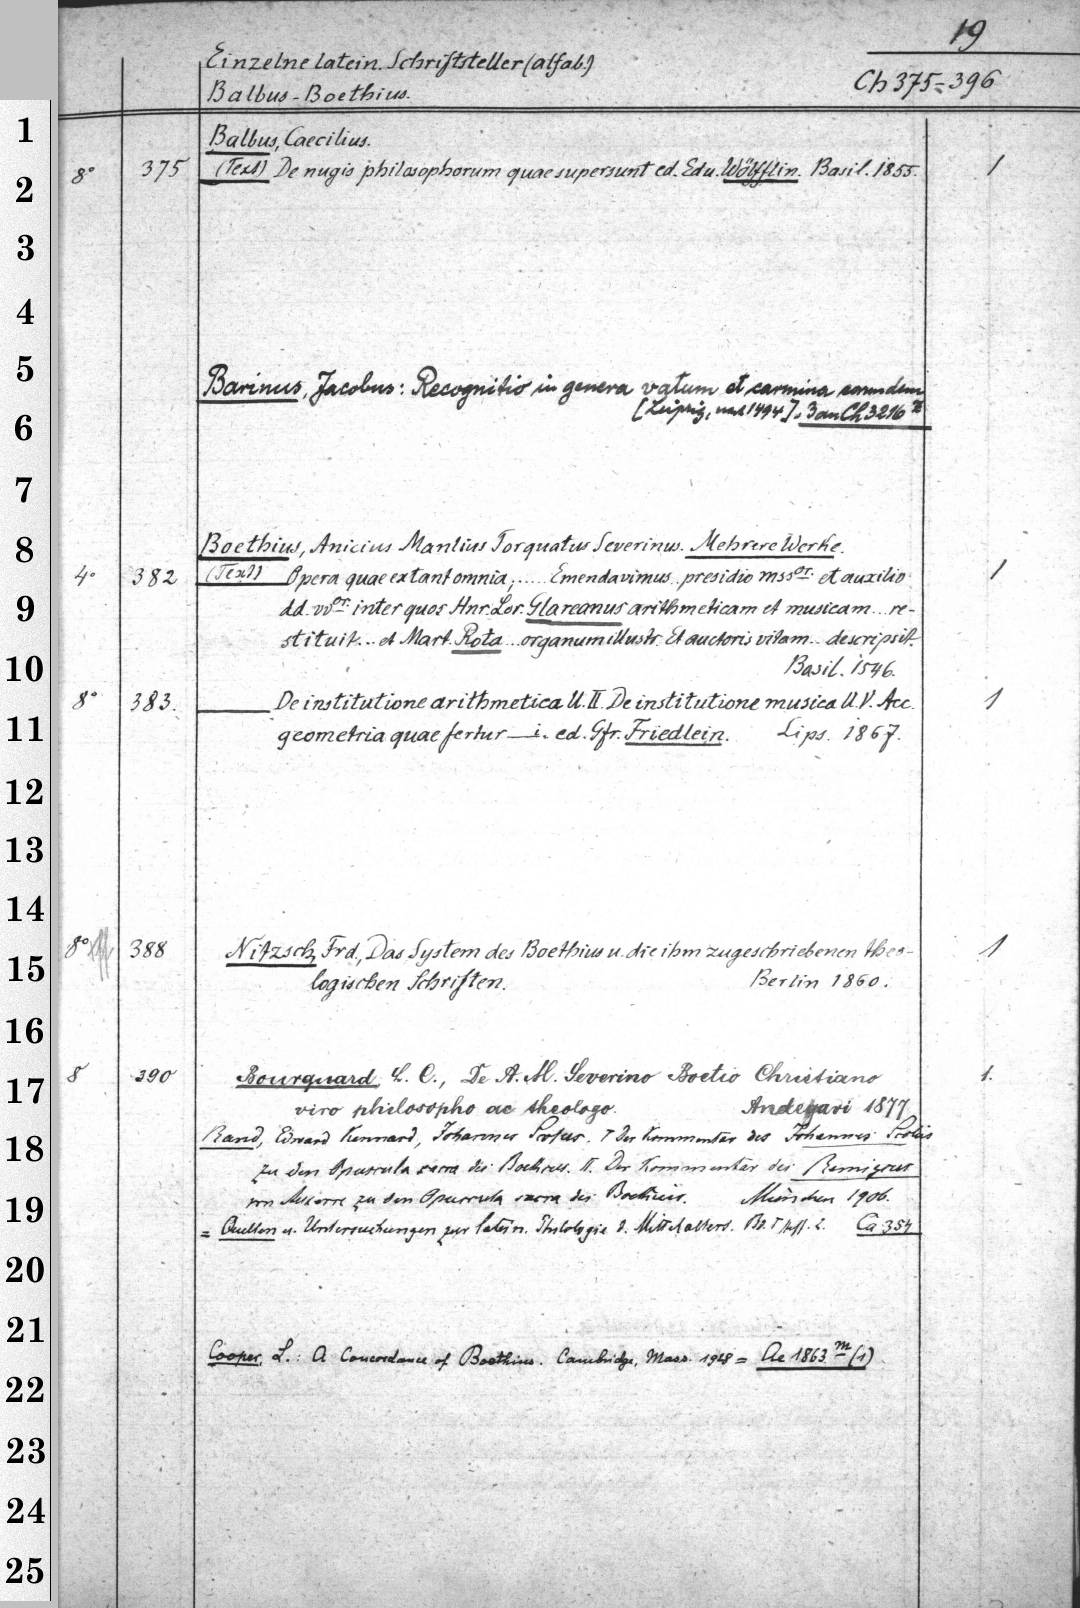 19
Einzelne latein. Schriftsteller (alfab.)
Balbus - Boethius.
Ch 375-396
1
Balbus, Caecilius.
8° 375 (Text) De nugis philosophorum quae supersunt ed. Edu. Wölfflin. Basil. 1855. 1
2
3
4
5
Barinus, Jacobus: Recognitio in genera vatum et carmina eorundem
[Leipzig, nach 1494]. 3 an Ch 3216 n
6
7
8
Boethius, Anicius Manlius Torquatus Severinus. Mehrere Werke.
4° 382 (Text) Opera quae extant omnia, ..... Emendavimus.. presidio mssor. et auxilio 1
9
dd. vvor. inter quos Hnr. Lor. Glareanus arithmeticam et musicam... re-
stituit... et Mart. Rota ...organum illustr. Et auctoris vitam... descripsit.
10
Basil. 1546.
8° 383. De institutione arithmetica ll. II. De institutione musica ll. V. Acc. 1
11
geometria quae fertur — i. ed. Gfr. Friedlein. Lips. 1867.
12
13
14
8° 388 Nitzsch, Frd., Das System des Boethius u. die ihm zugeschriebenen theo- 1
15
logischen Schriften. Berlin 1860.
16
8 390 Bourquard, L. C., De A. M. Severino Boetio Christiano 1.
17
viro philosopho ac theologo. Andegavi 1877
18
Rand, Edward Kennard, Johannes Scotus. I Der Kommentar des Johannes Scotus
zu den Opuscula sacra des Boethius. II. Der Kommentar des Remigius
19
von Auxerre zu den Opuscula sacra des Boethius. München 1906.
= Quellen u. Untersuchungen zur latein. Philologie d. Mittelalters. Bd. I Hft. 2. Ca 354
20
21
Cooper, L.: A Concordance of Boethius. Cambridge, Mass. 1928 = Ae 1863 m (1).
22
23
24
25